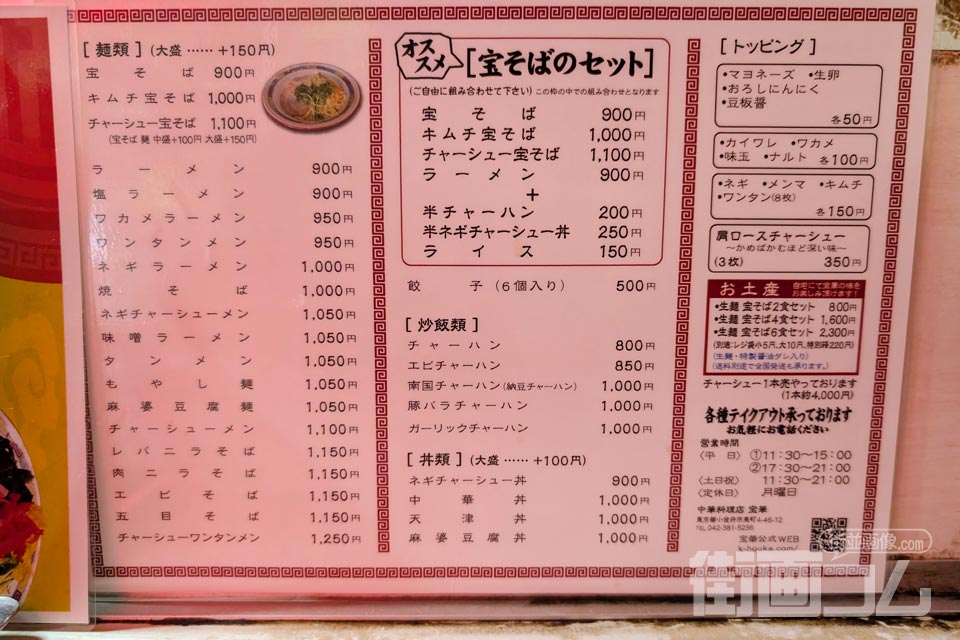 [麺類] (大盛……+150円)
宝そば 900円
キムチ宝そば 1,000円
チャーシュー宝そば 1,100円
(宝そば 麺 中盛+100円 大盛+150円)
ラーメン 900円
塩ラーメン 900円
ワカメラーメン 950円
ワンタンメン 950円
ネギラーメン 1,000円
焼そば 1,000円
ネギチャーシューメン 1,050円
味噌ラーメン 1,050円
タンメン 1,050円
もやし麺 1,050円
麻婆豆腐麺 1,050円
チャーシューメン 1,100円
レバニラそば 1,150円
肉ニラそば 1,150円
エビそば 1,150円
五目そば 1,150円
チャーシューワンタンメン 1,250円
オススメ [宝そばのセット]
(ご自由に組み合わせて下さい) この枠の中での組み合わせとなります
宝そば 900円
キムチ宝そば 1,000円
チャーシュー宝そば 1,100円
ラーメン 900円
+
半チャーハン 200円
半ネギチャーシュー丼 250円
ライス 150円
餃子(6個入り) 500円
[炒飯類]
チャーハン 800円
エビチャーハン 850円
南国チャーハン(納豆チャーハン) 1,000円
豚バラチャーハン 1,000円
ガーリックチャーハン 1,000円
[丼類] (大盛……+100円)
ネギチャーシュー丼 900円
中華丼 1,000円
天津丼 1,000円
麻婆豆腐丼 1,000円
[トッピング]
•マヨネーズ •生卵
•おろしにんにく
•豆板醤
各50円
•カイワレ •ワカメ
•味玉 •ナルト 各100円
•ネギ •メンマ •キムチ
•ワンタン(8枚)
各150円
肩ロースチャーシュー
〜かめばかむほど深い味〜
(3枚) 350円
お土産 自宅にて宝華の味をお楽しみ頂けます!
•生麺 宝そば2食セット 800円
•生麺 宝そば4食セット 1,600円
•生麺 宝そば6食セット 2,300円
(別途:レジ袋小5円、大10円、特別箱220円)
(生麺・特製醤油ダレ入り)
(送料別途で全国発送も承ります。)
チャーシュー1本売やっております
(1本約4,000円)
各種テイクアウト承っております
お気軽にお電話ください
営業時間
〈平日〉 ①11:30〜15:00
②17:30〜21:00
〈土日祝〉 11:30〜21:00
〈定休日〉 月曜日
中華料理店 宝華
東京都小金井市東町4-46-12
TEL.042-381-5236
宝華公式WEB
k-houka.com/
街並画像.com
街画コム